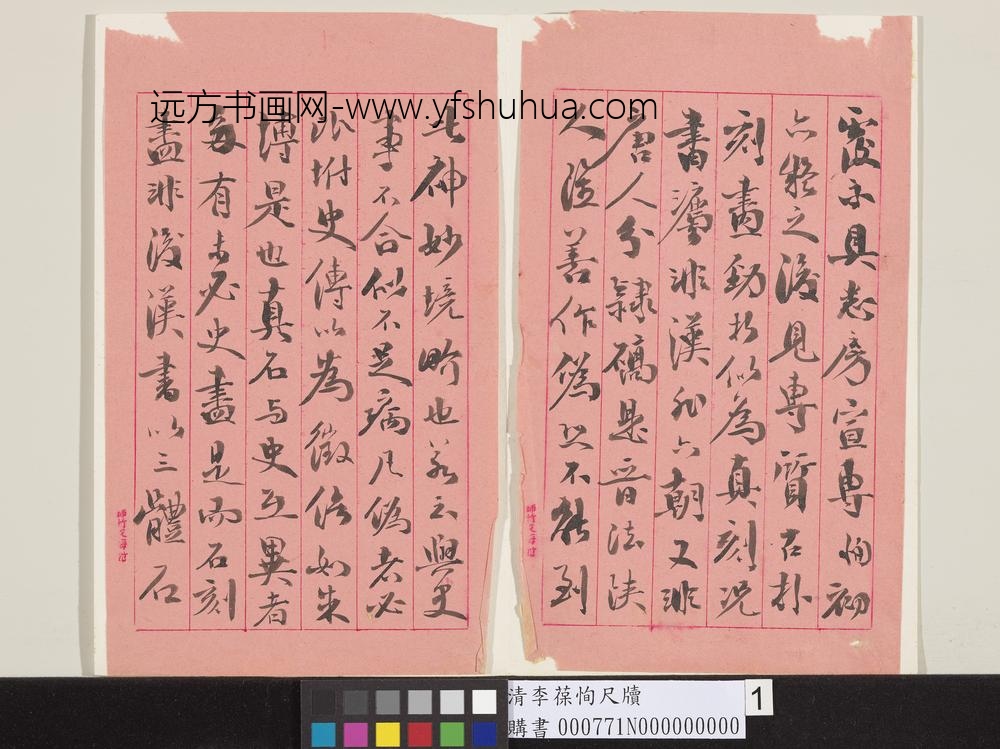 远方书画网-www.yfshuhua.com
覆示具悉房宣專
六疑之後見專質古朴
刻畫勁於似為真刻況
書非漢非六朝又非
唐人分隸確是晉法
人從善作偽必不能到
此神妙境畍也若云與史
事不合似不足病凡偽者必
附史傳以為徵信如朱
博是也真石与史互異者
每有未必史盡是而石刻
盡非後漢書以三體石
清李葆恂尺牘
購書 000771N000000000
1